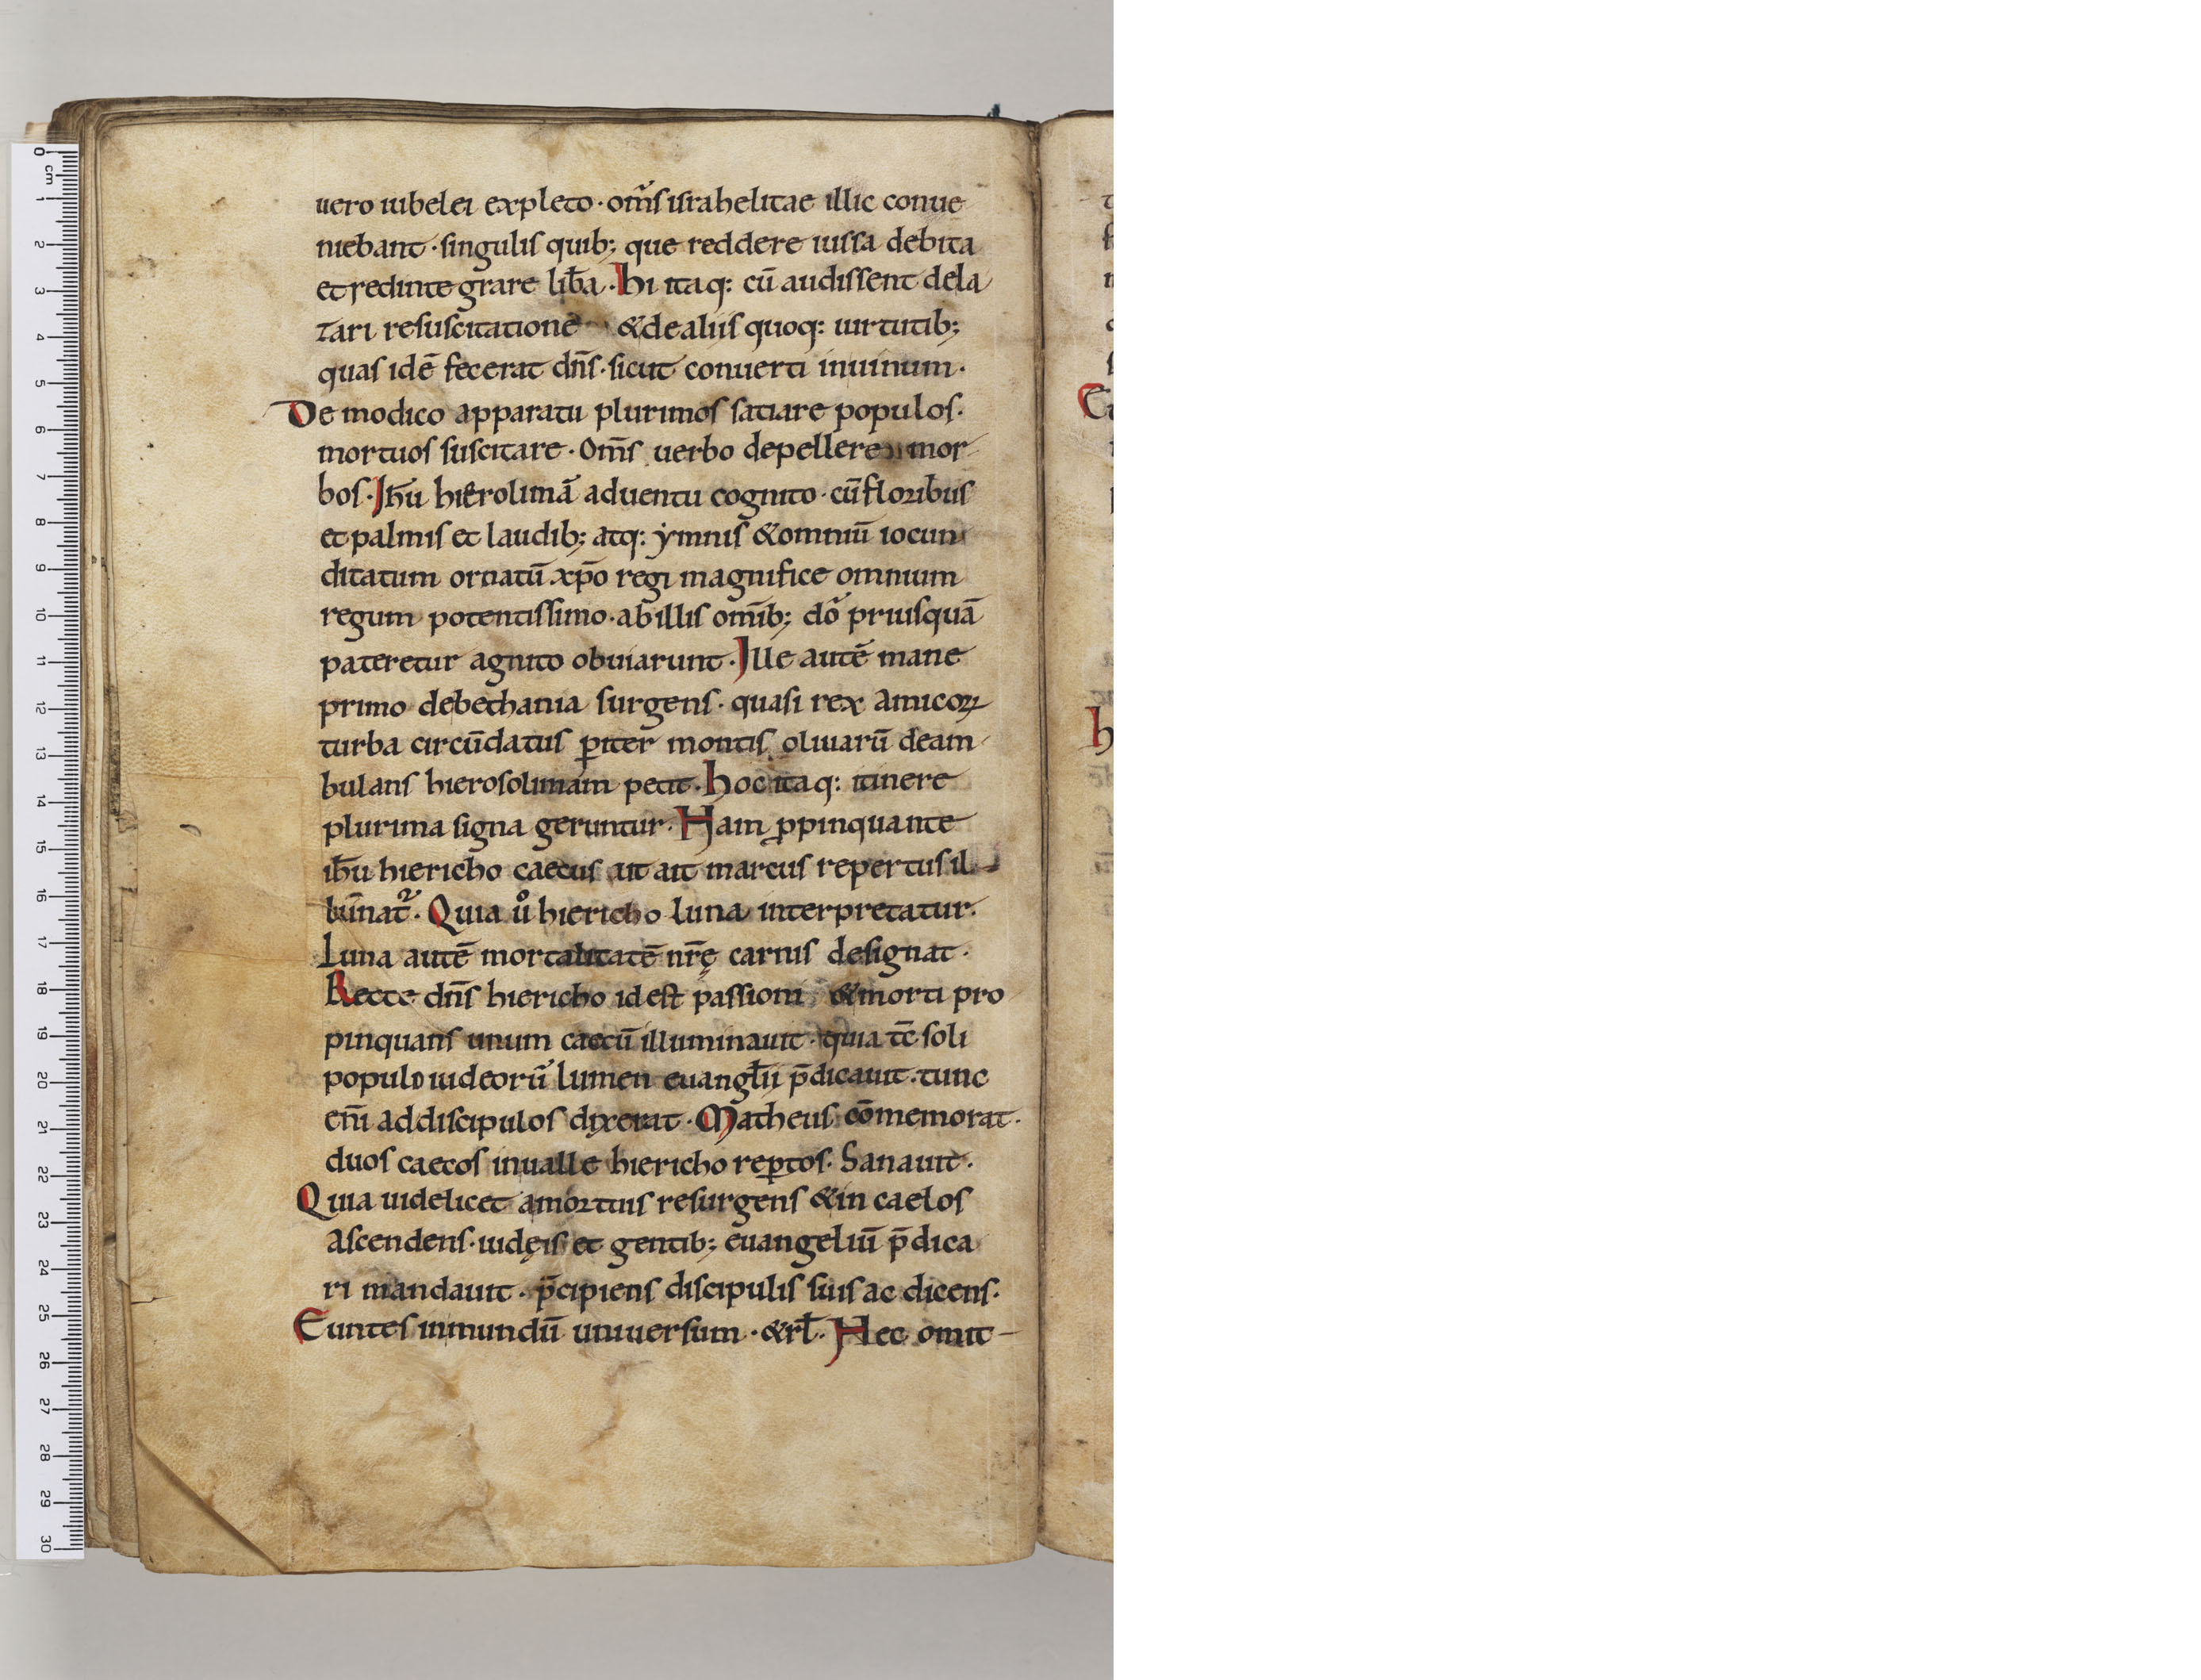 uero iubelei expleto · om̅s israhelitae illic conue
niebant · singulis quib; que reddere iussa debita
et redinte grare lib̅a · hi itaq: cu̅ audissent dela
zari resuscitatione &dealiis quoq: uirtutib;
quas ide̅ fecerat dn̅s · sicut conuerti inuinum ·
De modico apparatu plurimos satiare populos ·
mortuos suscitare · Om̅s uerbo depellere mor
bos · Ihu̅ hierolima̅ aduentu cognito · cu̅ floribus
et palmis et laudib; atq: ẏmnis &omniu̅ iocun
ditatum ornatu̅ xp̅o regi magnifice omnium
regum potentissimo · ab illis omib̅; do̅ priusqua̅
pateretur agnito obuiarunt · Ille aute̅ mane
primo debethania surgens · quasi rex amicoꝝ
turba circu̅datus ꝑiter montis oliuaru̅ deam
bulans hierosolimam petit · hoc itaq: itinere
plurima signa geruntur · Ham ꝓpinquante
ihu̅ hiericho caecus ut ait marcus repertus il
lumi̅nat᷑ · Quia uͦ hiericho luna interpretatur ·
Luna aute̅ mortalitate̅ nr̅ę carnis designat ·
Recte dn̅s hiericho id est passioni &morti pro
pinquans unum caecu̅ illuminauit · quia tc̅ soli
populo iudeoru̅ lumen euangl̅ii p̅dicauit · tunc
eni̅ addiscipulos dixerat · Matheus co̅memorat ·
duos caecos inualle hiericho reꝑtos · Sanauit ·
Quia uidelicet amortuis resurgens &in caelos
Ascendens · iudęis et gentib; euangeliu̅ p̅dica
ri mandauit · p̅cipiens discipulis suis ac dicens ·
Euntes inmundu̅ uniuersum · &rl̅ · Hec omit-